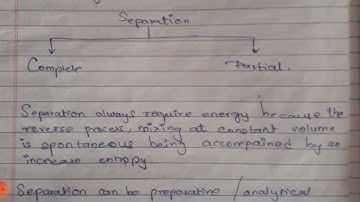 Separation
Complete Partial.
Separation always require energy because the
reverse process, mixing at constant volume
is spontaneous being accompained by an
increase entropy.
Separation can be preparative / analytical